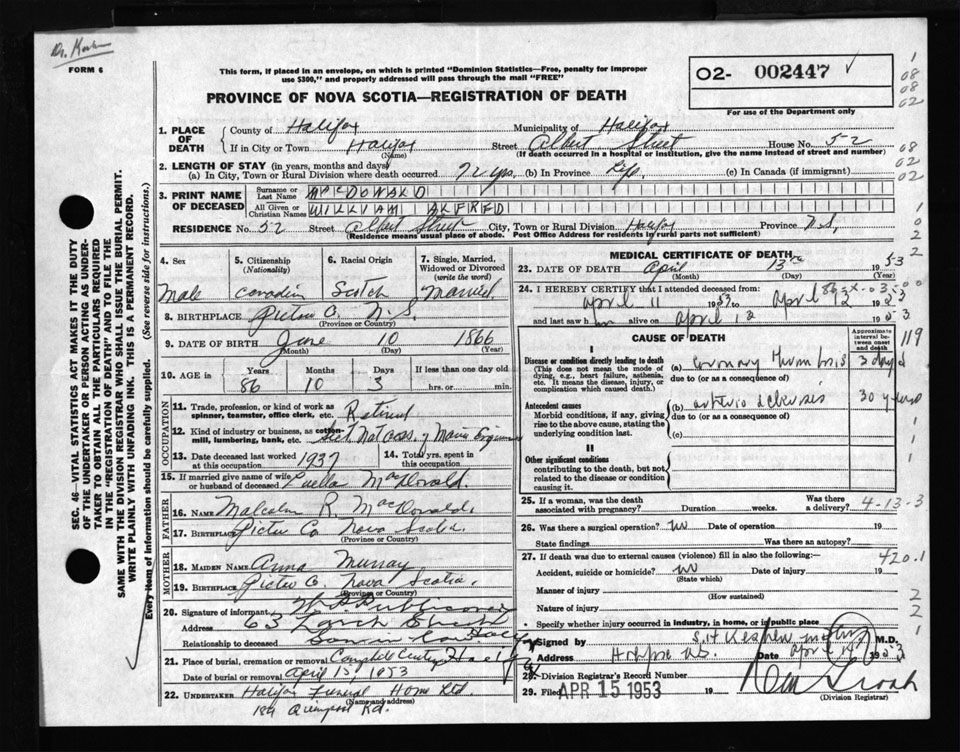 FORM 6
This form, if placed in an envelope, on which is printed "Dominion Statistics—Free, penalty for improper
use $300," and properly addressed will pass through the mail "FREE"
PROVINCE OF NOVA SCOTIA—REGISTRATION OF DEATH
O2- 002447
For use of the Department only
1. PLACE OF DEATH { County of Halifax Municipality of Halifax
If in City or Town Halifax (Name) Street Albert Street House No. 52
(If death occurred in a hospital or institution, give the name instead of street and number)
2. LENGTH OF STAY (in years, months and days)
(a) In City, Town or Rural Division where death occurred. 72 yrs. (b) In Province Life (c) In Canada (if immigrant)
3. PRINT NAME OF DECEASED { Surname or Last Name MACDONALD
All Given or Christian Names WILLIAM ALFRED
RESIDENCE No. 52 Street Albert Street City, Town or Rural Division Halifax Province N.S.
(Residence means usual place of abode. Post Office Address for residents in rural parts not sufficient)
4. Sex
Male
5. Citizenship (Nationality)
Canadian
6. Racial Origin
Scotch
7. Single, Married, Widowed or Divorced (write the word)
Married
8. BIRTHPLACE Pictou Co. N.S.
(Province or Country)
9. DATE OF BIRTH June 10 1866
(Month) (Day) (Year)
10. AGE in Years Months Days If less than one day old
86 10 3 hrs. or min.
OCCUPATION
11. Trade, profession, or kind of work as spinner, teamster, office clerk, etc. Retired
12. Kind of industry or business, as cotton-mill, lumbering, bank, etc. Sect. Nat. Assc. of Marine Engineers
13. Date deceased last worked at this occupation 1937
14. Total yrs. spent in this occupation
15. If married give name of wife or husband of deceased Luella MacDonald.
FATHER
16. NAME Malcolm R. MacDonald
17. BIRTHPLACE Pictou Co Nova Scotia
(Province or Country)
MOTHER
18. MAIDEN NAME Anna Murray
19. BIRTHPLACE Pictou Co. Nova Scotia
(Province or Country)
20. Signature of informant
Address 63 Larch Street
Relationship to deceased Son in law
21. Place of burial, cremation or removal
Date of burial or removal April 15, 1953
22. UNDERTAKER Halifax Funeral Home Ltd.
(Name and address)
Quinpool Rd.
MEDICAL CERTIFICATE OF DEATH
23. DATE OF DEATH April 13th 1953
(Month) (Day) (Year)
24. I HEREBY CERTIFY that I attended deceased from:
April 11 1953 to April 12 1953
and last saw him alive on April 12 1953
CAUSE OF DEATH
Approximate interval between onset and death
I
Disease or condition directly leading to death
(This does not mean the mode of dying, e.g., heart failure, asthenia, etc. It means the disease, injury, or complication which caused death.)
(a) Coronary Thrombosis 3 days
due to (or as a consequence of)
Antecedent causes
Morbid conditions, if any, giving rise to the above cause, stating the underlying condition last.
(b) arterio sclerosis 30 years
due to (or as a consequence of)
(c)
II
Other significant conditions
contributing to the death, but not related to the disease or condition causing it.
119
25. If a woman, was the death associated with pregnancy? Duration weeks. Was there a delivery?
4-13-3
26. Was there a surgical operation? no Date of operation 19
State findings Was there an autopsy?
27. If death was due to external causes (violence) fill in also the following:—
420.1
Accident, suicide or homicide? no Date of injury 19
(State which)
Manner of injury
(How sustained)
Nature of injury
Specify whether injury occurred in industry, in home, or in public place
Signed by M.D.
Address Halifax N.S. Date April 1953
28. Division Registrar's Record Number
29. Filed APR 15 1953 19
(Division Registrar)
SEC. 46—VITAL STATISTICS ACT MAKES IT THE DUTY
OF THE UNDERTAKER OR PERSON ACTING AS UNDER-
TAKER TO OBTAIN ALL THE PARTICULARS REQUIRED
IN THE "REGISTRATION OF DEATH" AND TO FILE THE
SAME WITH THE DIVISION REGISTRAR WHO SHALL ISSUE THE BURIAL PERMIT.
WRITE PLAINLY WITH UNFADING INK. THIS IS A PERMANENT RECORD.
Every item of information should be carefully supplied. (See reverse side for instructions.)